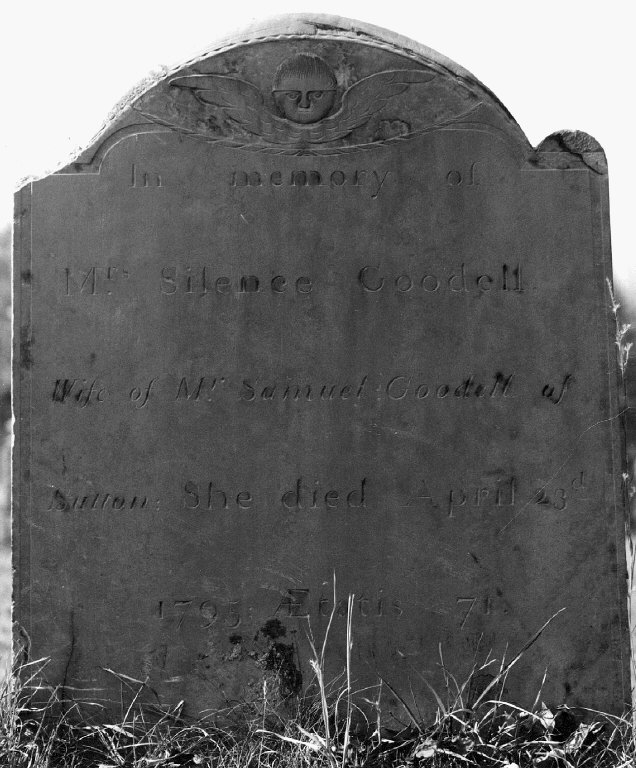 In memory of
Mrs. Silence Goodell.
Wife of Mr. Samuel Goodell of
Sutton; She died April 23d
1795: Ætatis 71.